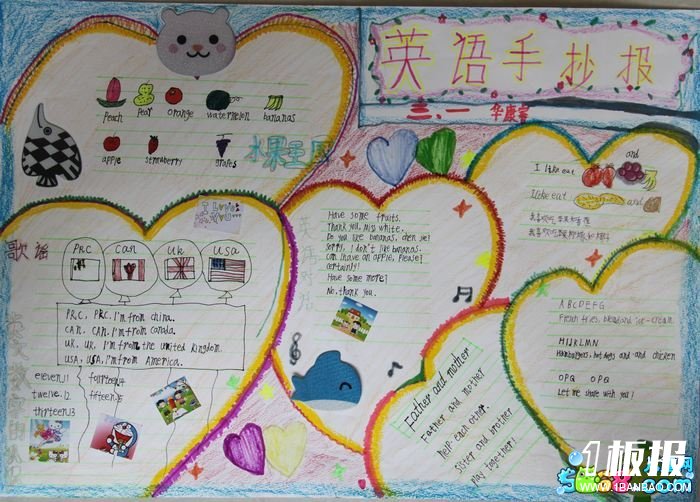 英语手抄报
三、一 华康睿
Peach Pear orange watermelon bananas
apple strawberry grapes
水果王国
I Love
You...
歌谣
PRC Can UK USA
PRC, PRC. I'm from china.
CAN, CAN. I'm from Canada.
UK, UK, I'm from the united kingdom.
USA, USA, I'm from America.
eleven11 fourteen14
twelve.12 fifteen15
thirteen13
英语对话
Have some fruits.
Thank you, miss white.
Do you like bananas, chen jie?
Sorry, I don't like bananas.
Can I have an apple, Please?
Certainly!
Have some more?
No, thank you.
and
I like eat
I like eat and
Father and mother
Father and mother
Help each other.
Sister and brother
Play together!
ABCDEFG
French fries, bread and ice-cream.
HIJKLMN
Hamburgers, hot dogs and and chicken
OPQ OPQ
Let me share with you!
1板报
WWW.1BANBAO.COM